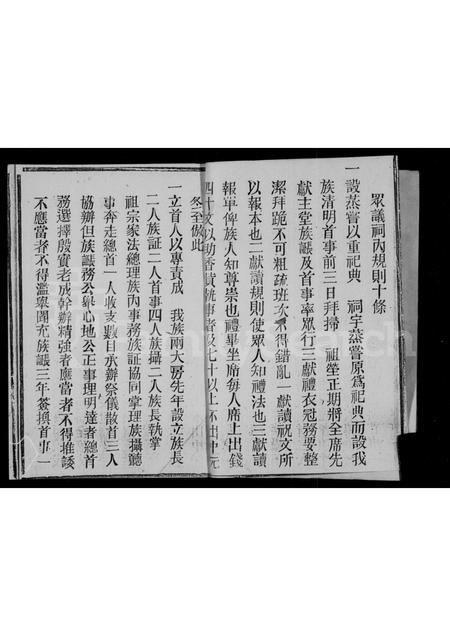 眾議祠內規則十條
一設蒸嘗以重祀典　祠宇蒸嘗原為祀典而設我
族清明首事前三日拜掃　祖塋正期將全席先
獻主堂族長及首事率眾行三獻禮衣冠務要整
潔拜跪不可粗疏班次不得錯亂一獻讀祝文所
以報本也二獻讀規則使眾人知禮法也三獻讀
報單俾族人知尊崇也禮畢坐席每人席上出錢
四十文以助香資執事者及七十以上不出中元
冬至倣此
一立首人以專責成　我族兩大房先年設立族長
二人族証二人首事四人族攝二人族長執掌
祖宗家法總理族內事務族証協同掌理族攝聽
事奔走總首一人收支數目承辦祭儀散首三人
協辦但族長務公舉心地公正事理明達者總首
務選擇殷實老成幹辦精強者應當者不得推諉
不應當者不得濫舉闒充族長三年簽換首事一